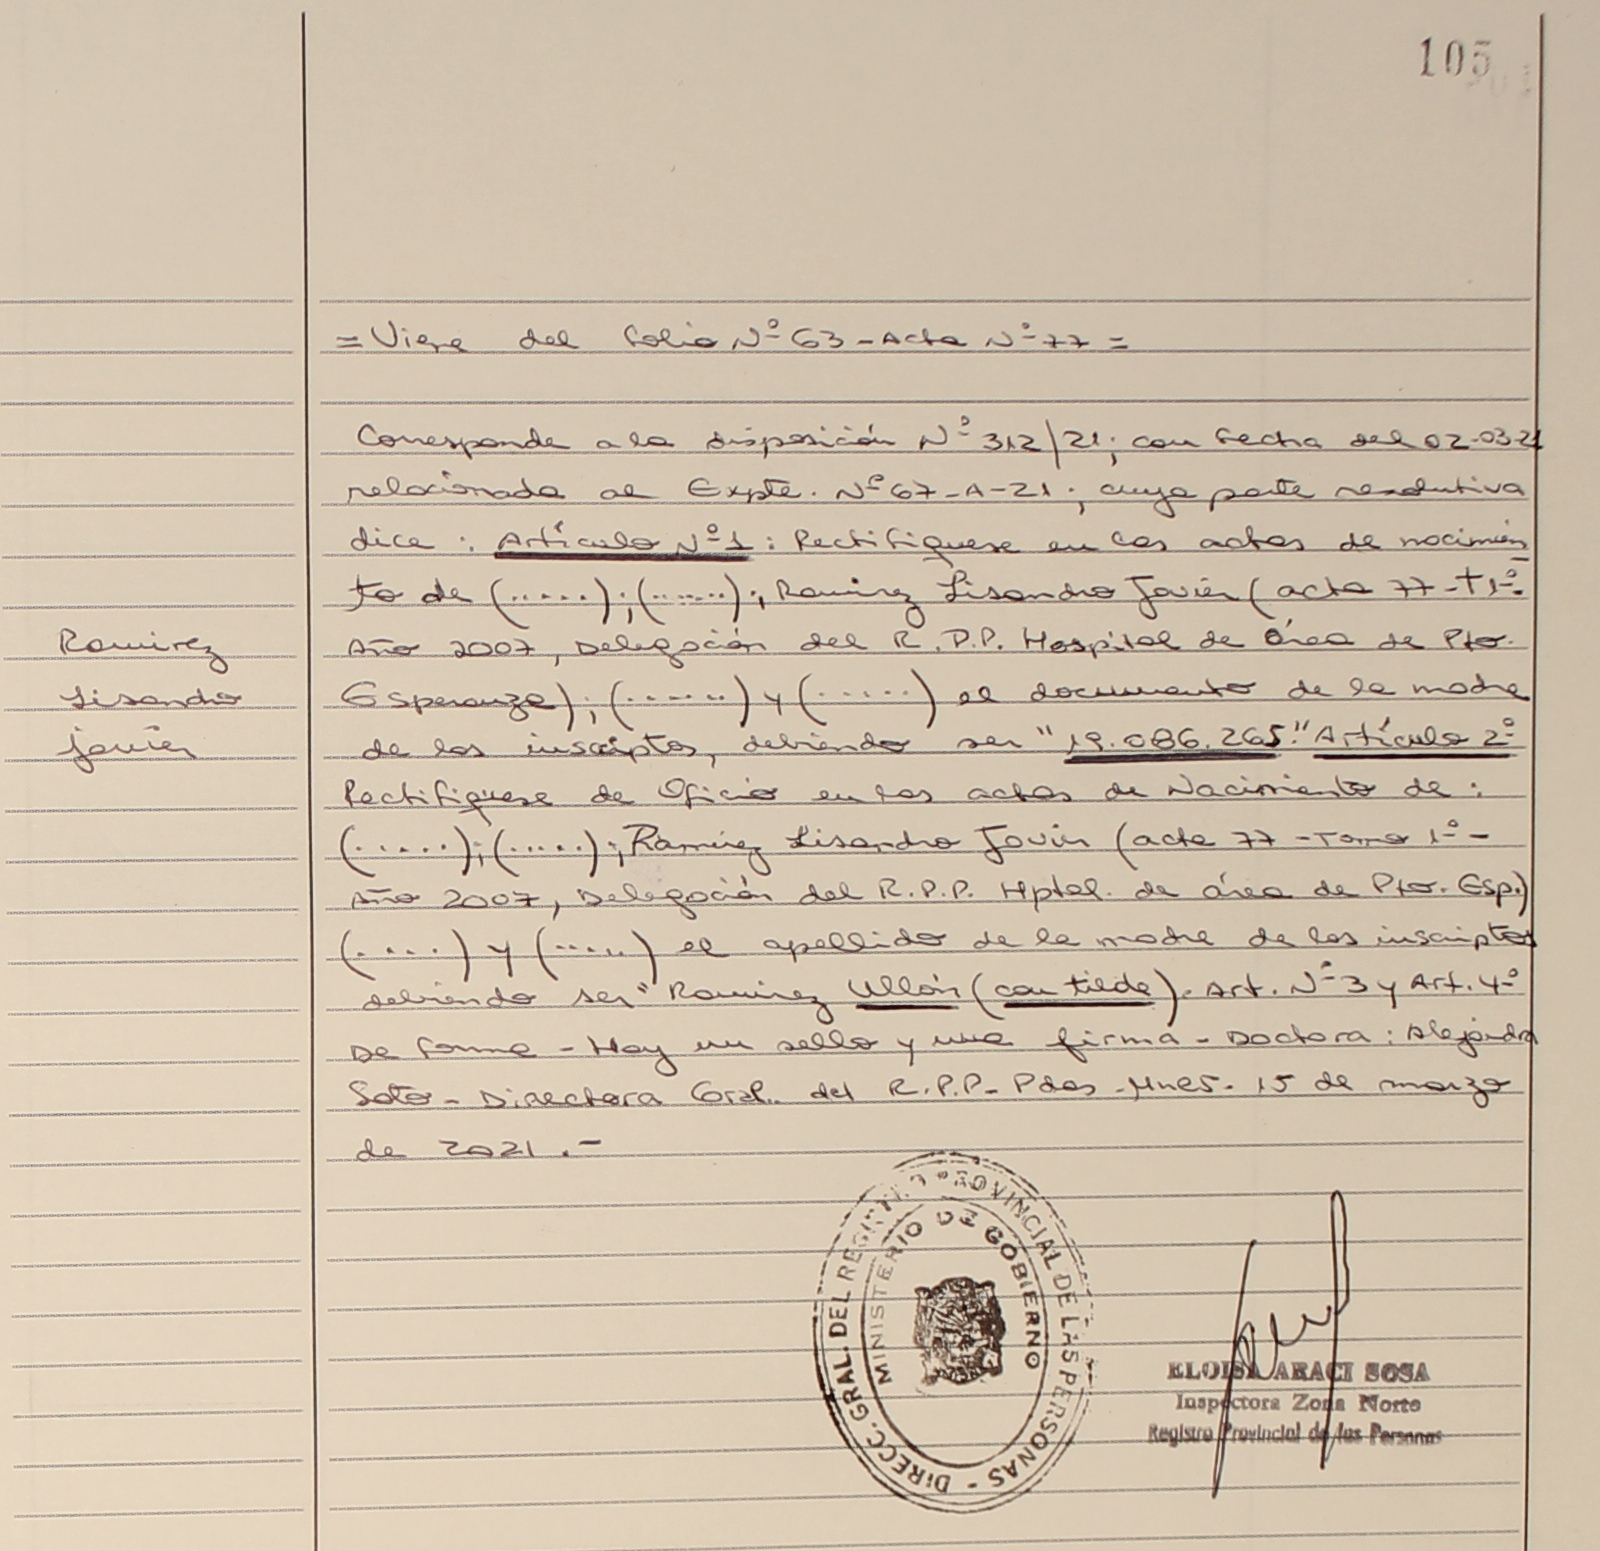 105
= Viene del folio Nº 63 - Acta Nº 77 =
Corresponde a la disposición Nº 312/21; con fecha del 02-03-21
relacionada al Expte. Nº 67-A-21; cuya parte resolutiva
dice: Artículo Nº 1: Rectifíquese en las actas de nacimien
to de (.....);(......); Ramirez Lisandro Javier (acta 77 - T 1º-
Ramirez
Lisandro
Javier
Año 2007, Delegación del R.P.P. Hospital de área de Pto.
Esperanza); (......) y (......) el documento de la madre
de los inscriptos, debiendo ser "19.086.265." Artículo 2º
Rectifíquese de Oficio en las actas de Nacimiento de:
(.....);(.....); Ramirez Lisandro Javier (acta 77 - Tomo 1º -
Año 2007, Delegación del R.P.P. Hptal. de área de Pto. Esp.)
(.....) y (.....) el apellido de la madre de los inscriptos
debiendo ser "Ramirez Ullón (con tilde). Art. Nº 3 y Art. 4º
De forma - Hay un sello y una firma - Doctora: Alejandra
Soto - Directora Gral. del R.P.P- Pdas - Mnes. 15 de marzo
de 2021.-
DIRECC. GRAL. DEL REGISTRO PROVINCIAL DE LAS PERSONAS -
MINISTERIO DE GOBIERNO
ELOISA ARACI SOSA
Inspectora Zona Norte
Registro Provincial de las Personas